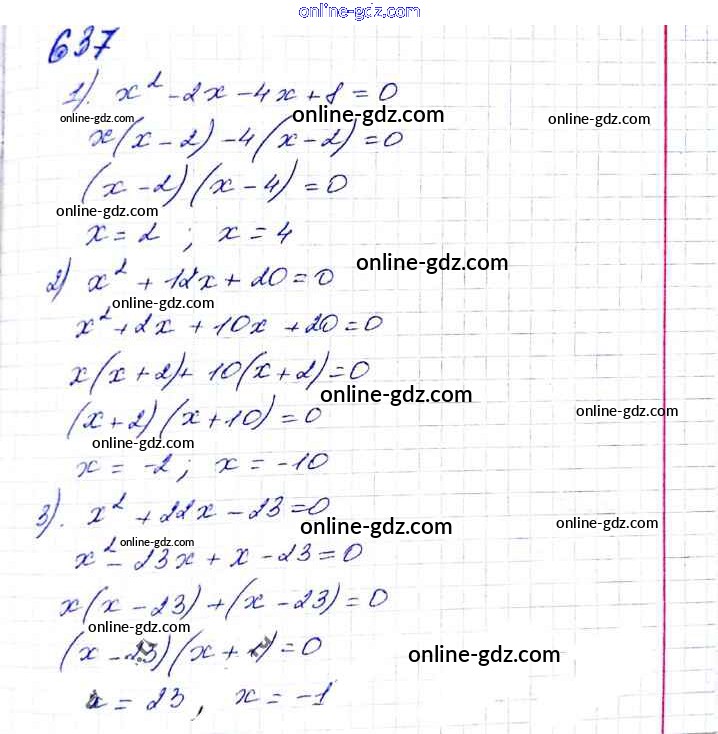 online-gdz.com
637
1). x² - 2x - 4x + 8 = 0
online-gdz.com online-gdz.com online-gdz.com
x(x - 2) - 4(x - 2) = 0
(x - 2)(x - 4) = 0
online-gdz.com online-gdz.com
x = 2 ; x = 4
online-gdz.com
2) x² + 12x + 20 = 0
online-gdz.com
x² + 2x + 10x + 20 = 0
x(x + 2) + 10(x + 2) = 0
online-gdz.com online-gdz.com
(x + 2)(x + 10) = 0
online-gdz.com
x = -2 ; x = -10
3). x² + 22x - 23 = 0
online-gdz.com online-gdz.com
online-gdz.com
x² - 23x + x - 23 = 0
x(x - 23) + (x - 23) = 0
online-gdz.com
(x - 23)(x + 1) = 0
online-gdz.com
x = 23 , x = -1